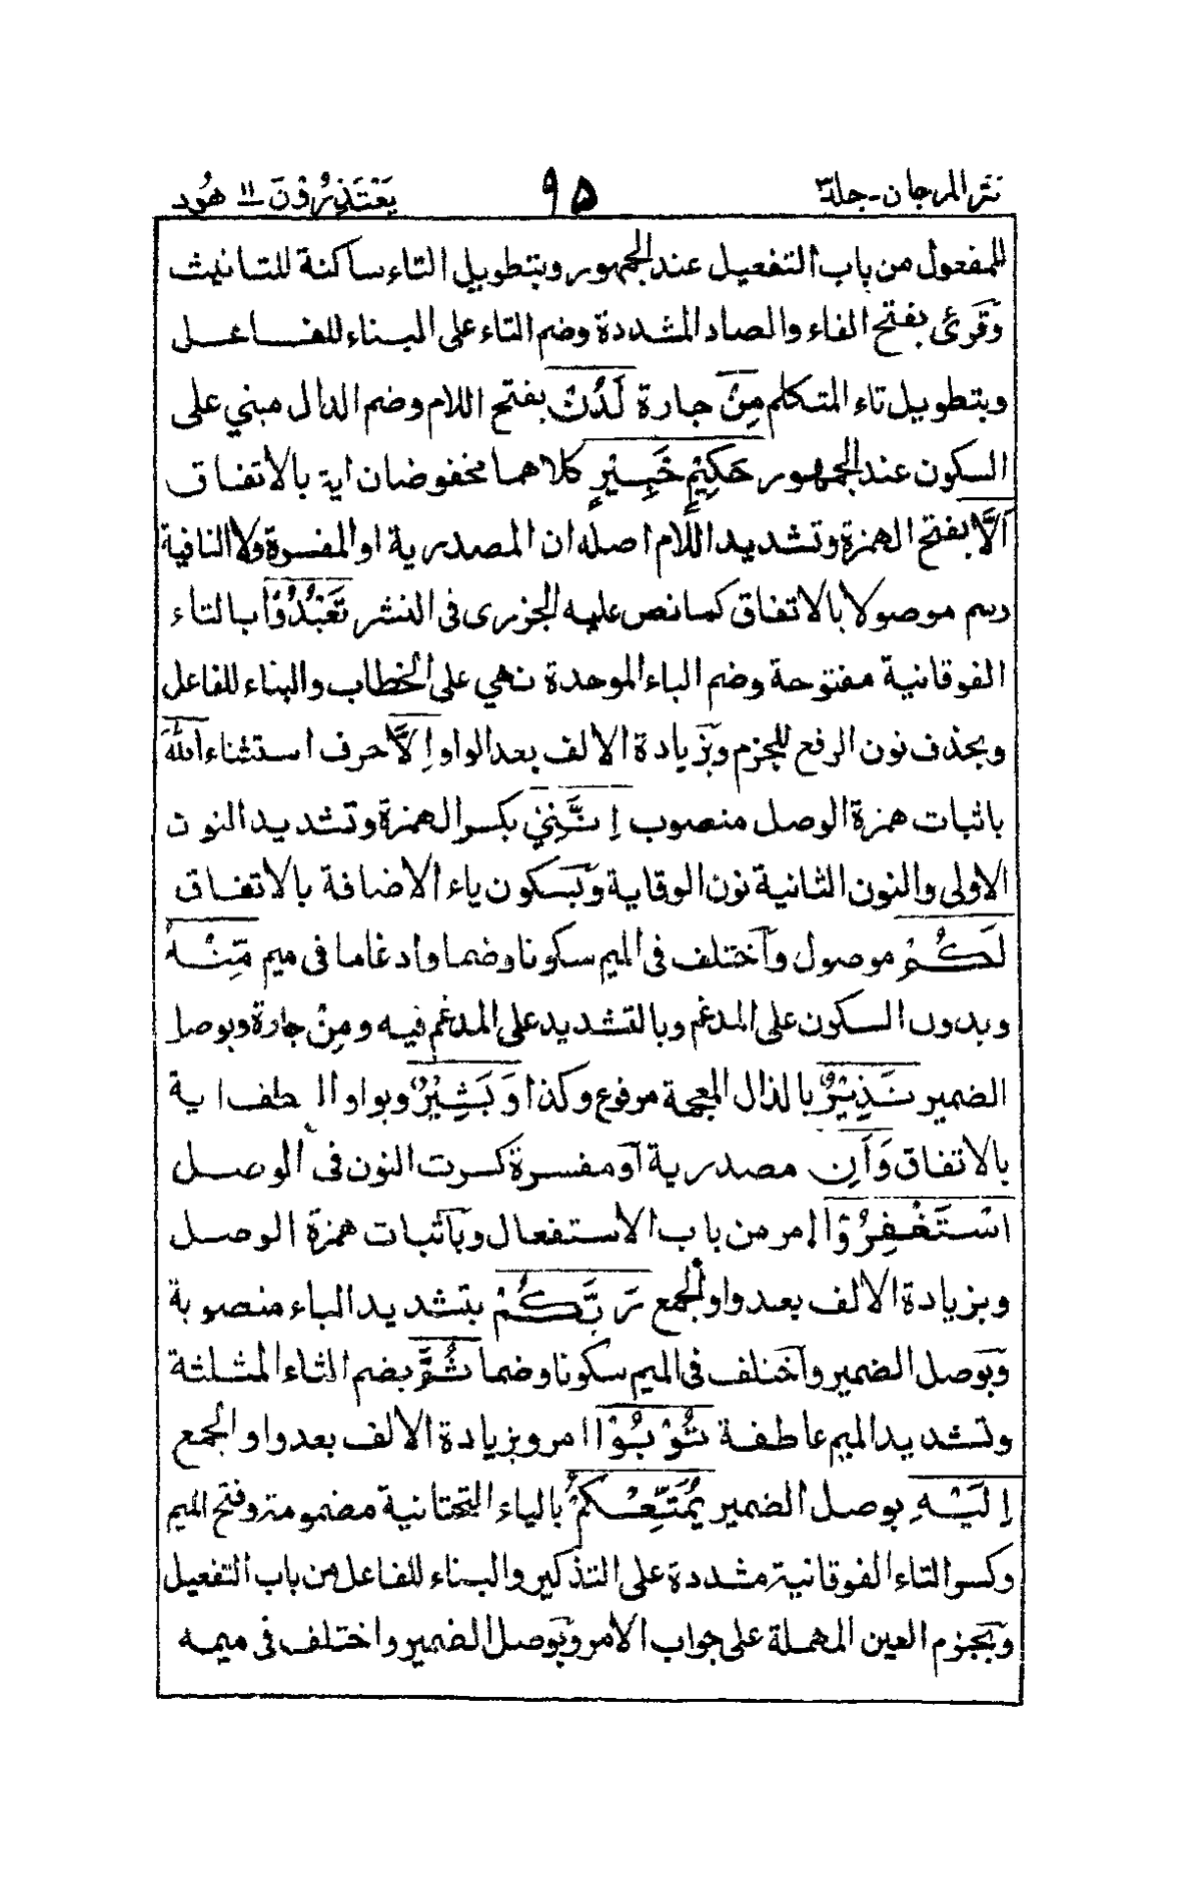 نثر المرجان-جلد٣ ٩٥ يَعْتَذِرُوْنَ ١١ هُود
للمفعول من باب التفعيل عند الجمهور وبتطويل التاء ساكنة للتانيث
وَقرئ بفتح الفاء والصاد المشددة وضم التاء على البناء للفاعل
وبتطويل تاء المتكلم مِنْ جارة لَدُنْ بفتح اللام وضم الدال مبني على
السكون عند الجمهور حَكِيْمٍ خَبِيْرٍ كلاهما مخفوضان اية بالاتفاق
اَلَّا بفتح الهمزة وتشديد اللام اصله ان المصدرية او المفسرة ولا النافية
رسم موصولا بالاتفاق كما نص عليه الجزرى فى النشر تَعْبُدُوْا بالتاء
الفوقانية مفتوحة وضم الباء الموحدة نهي على الخطاب والبناء للفاعل
وبحذف نون الرفع للجزم وبزيادة الالف بعد الواو اِلَّا حرف استثناء اللّٰهَ
باثبات همزة الوصل منصوب اِنَّنِيْ بكسر الهمزة وتشديد النون
الاولى والنون الثانية نون الوقاية وَبسكون ياء الاضافة بالاتفاق
لَكُمْ موصول وَاختلف فى الميم سكونا وضما وادغاما فى ميم مِّنْهُ
وبدون السكون على المدغم وبالتشديد على المدغم فيه ومِنْ جارة وبوصل
الضمير نَذِيْرٌ بالذال المعجمة مرفوع وكذا وَبَشِيْرٌ وبواو ال طف اية
بالاتفاق وَاَنِ مصدرية اَو مفسرة كسرت النون فى الوصل
اسْتَغْفِرُوْا امر من باب الاستفعال وبَاثبات همزة الوصل
وبزيادة الالف بعد واو الجمع رَبَّكُمْ بتشديد الباء منصوبة
وَبوصل الضمير وَاختلف فى الميم سكونا وضما ثُمَّ بضم الثاء المثلثة
وتشديد الميم عاطفة تُوْبُوْا امر وبزيادة الالف بعد واو الجمع
اِلَيْهِ بوصل الضمير يُمَتِّعْكُمْ بالياء التحتانية مضمومة وفتح الميم
وكسر التاء الفوقانية مشددة على التذكير والبناء للفاعل من باب التفعيل
وَبجزم العين المهملة على جواب الامر وَبوصل الضمير واختلف فى ميمه